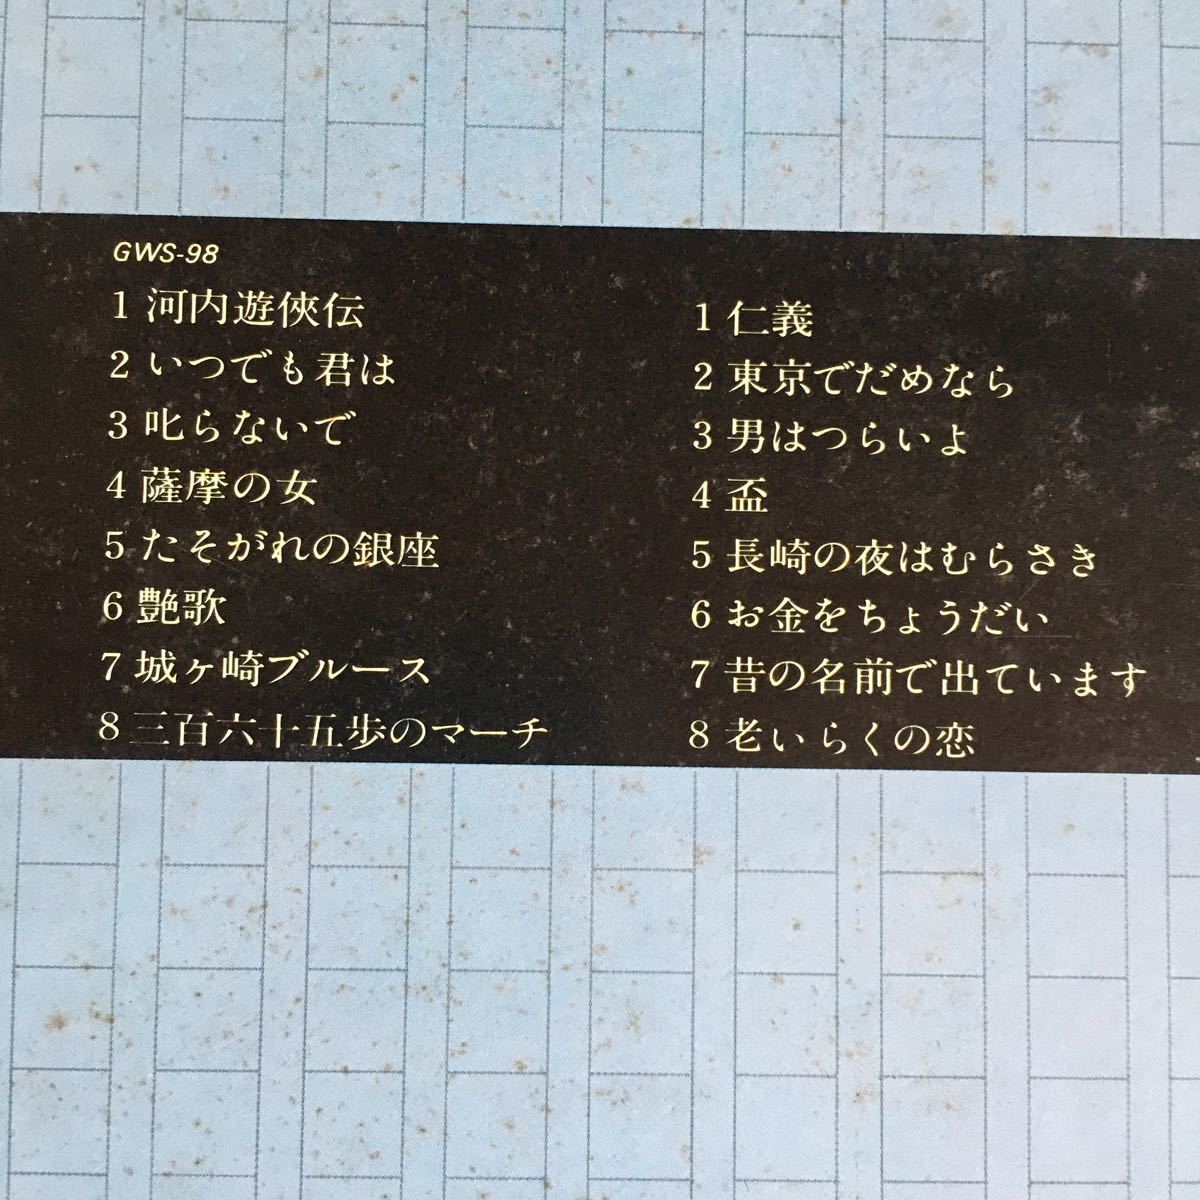 GWS-98
1 河内遊俠伝
2 いつでも君は
3 叱らないで
4 薩摩の女
5 たそがれの銀座
6 艶歌
7 城ヶ崎ブルース
8 三百六十五歩のマーチ
1 仁義
2 東京でだめなら
3 男はつらいよ
4 盃
5 長崎の夜はむらさき
6 お金をちょうだい
7 昔の名前で出ています
8 老いらくの恋